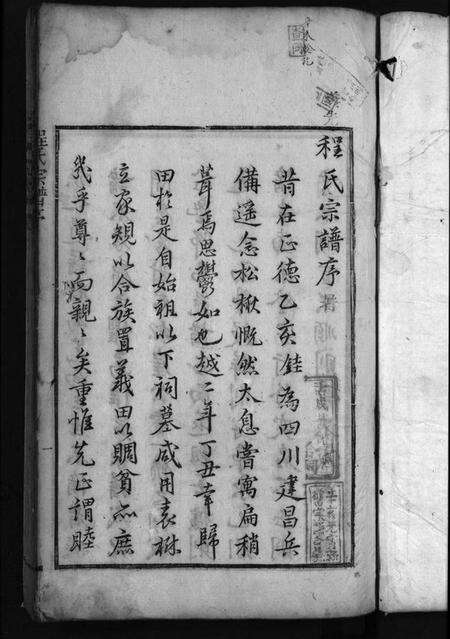 程氏宗譜序
昔在正德乙亥銈為四川建昌兵
備遥念松楸慨然太息嘗寓扁稍
葺焉思鬱如也越二年丁丑幸歸
田於是自始祖以下祠墓咸用表樹
立家規以合族置義田以賙貧亦庶
幾乎尊尊而親親矣重惟先正謂睦